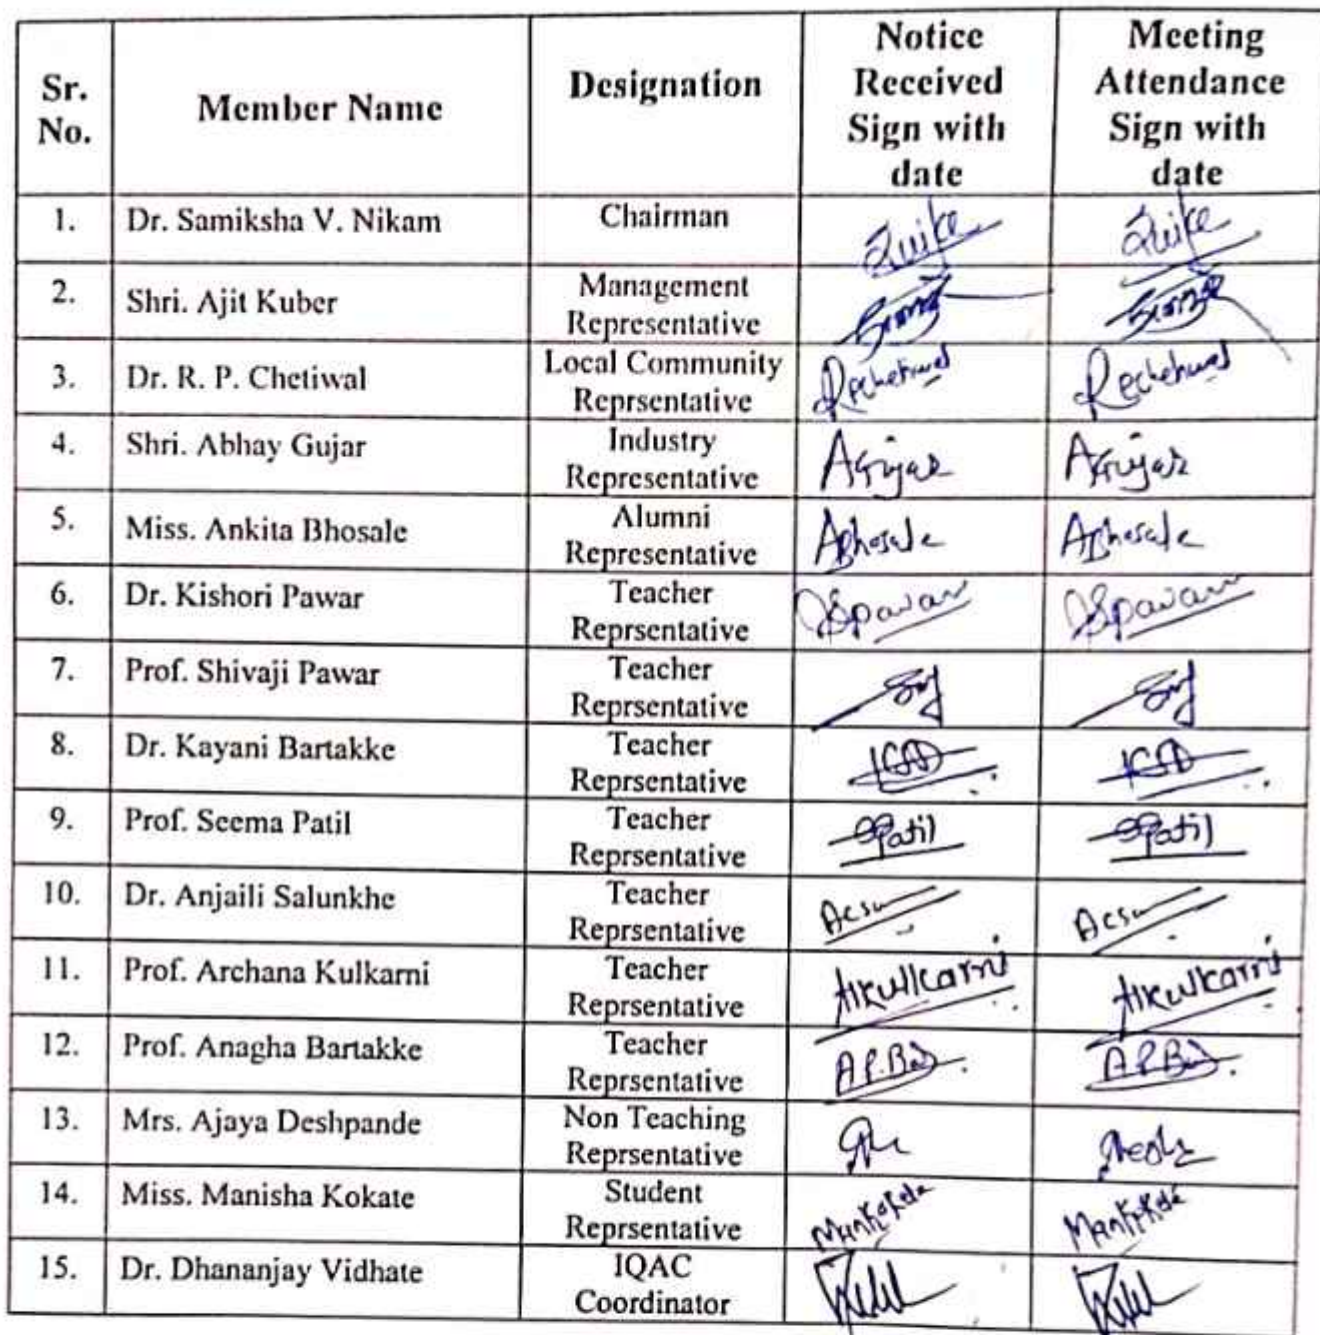 Sr. No.
Member Name
Designation
Notice Received Sign with date
Meeting Attendance Sign with date
1. Dr. Samiksha V. Nikam Chairman
2. Shri. Ajit Kuber Management Representative
3. Dr. R. P. Chetiwal Local Community Reprsentative
4. Shri. Abhay Gujar Industry Representative AGujar AGujar
5. Miss. Ankita Bhosale Alumni Representative ABhosale ABhosale
6. Dr. Kishori Pawar Teacher Reprsentative
7. Prof. Shivaji Pawar Teacher Reprsentative
8. Dr. Kayani Bartakke Teacher Reprsentative
9. Prof. Seema Patil Teacher Reprsentative SPatil SPatil
10. Dr. Anjaili Salunkhe Teacher Reprsentative
11. Prof. Archana Kulkarni Teacher Reprsentative AKulkarni AKulkarni
12. Prof. Anagha Bartakke Teacher Reprsentative
13. Mrs. Ajaya Deshpande Non Teaching Reprsentative
14. Miss. Manisha Kokate Student Reprsentative
15. Dr. Dhananjay Vidhate IQAC Coordinator